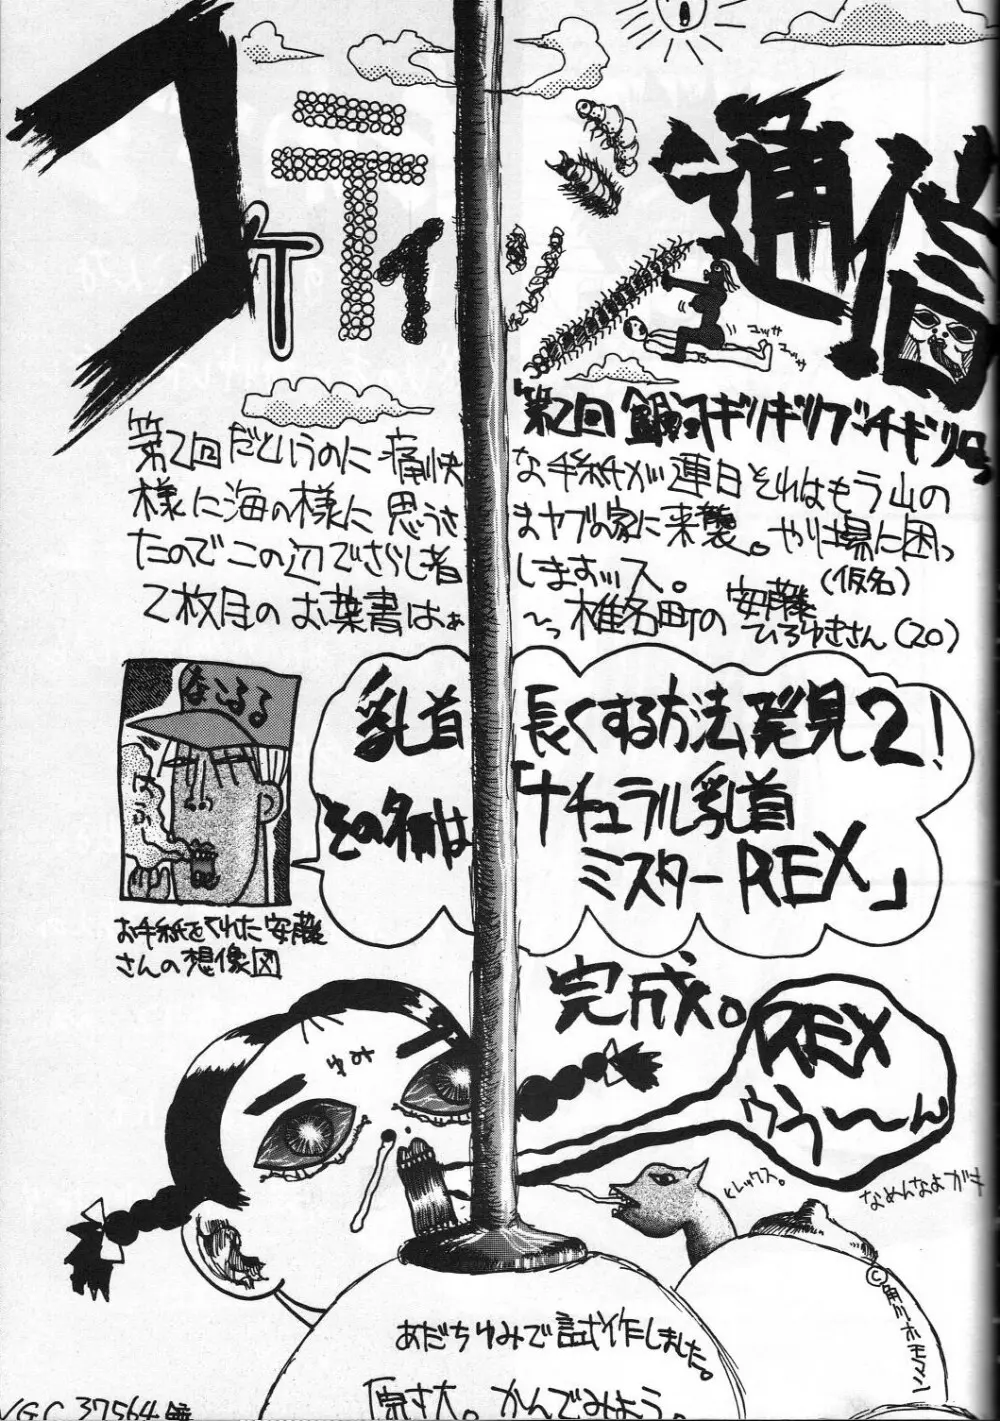 通信
第2回 ギリギリブッチギリ号
第2回だというのに痛快な手紙が連日それはもう山の
様に海の様に思うさまヤブの家に来襲。やり場に困っ
たのでこの辺でさらし者しますッス。
2枚目のお葉書はぁ〜っ椎名町の安藤ひろゆきさん(20)
(仮名)
なこるる
乳首長くする方法発見2!
その名は「ナチュラル乳首
ミスターREX」
お手紙をくれた安藤
さんの想像図
完成。
REX
ゥう〜〜ん
ゆみ
ヒレックス。
なめんなよガキ
あだちゆみで試作しました。
原寸大。かんでみよう。